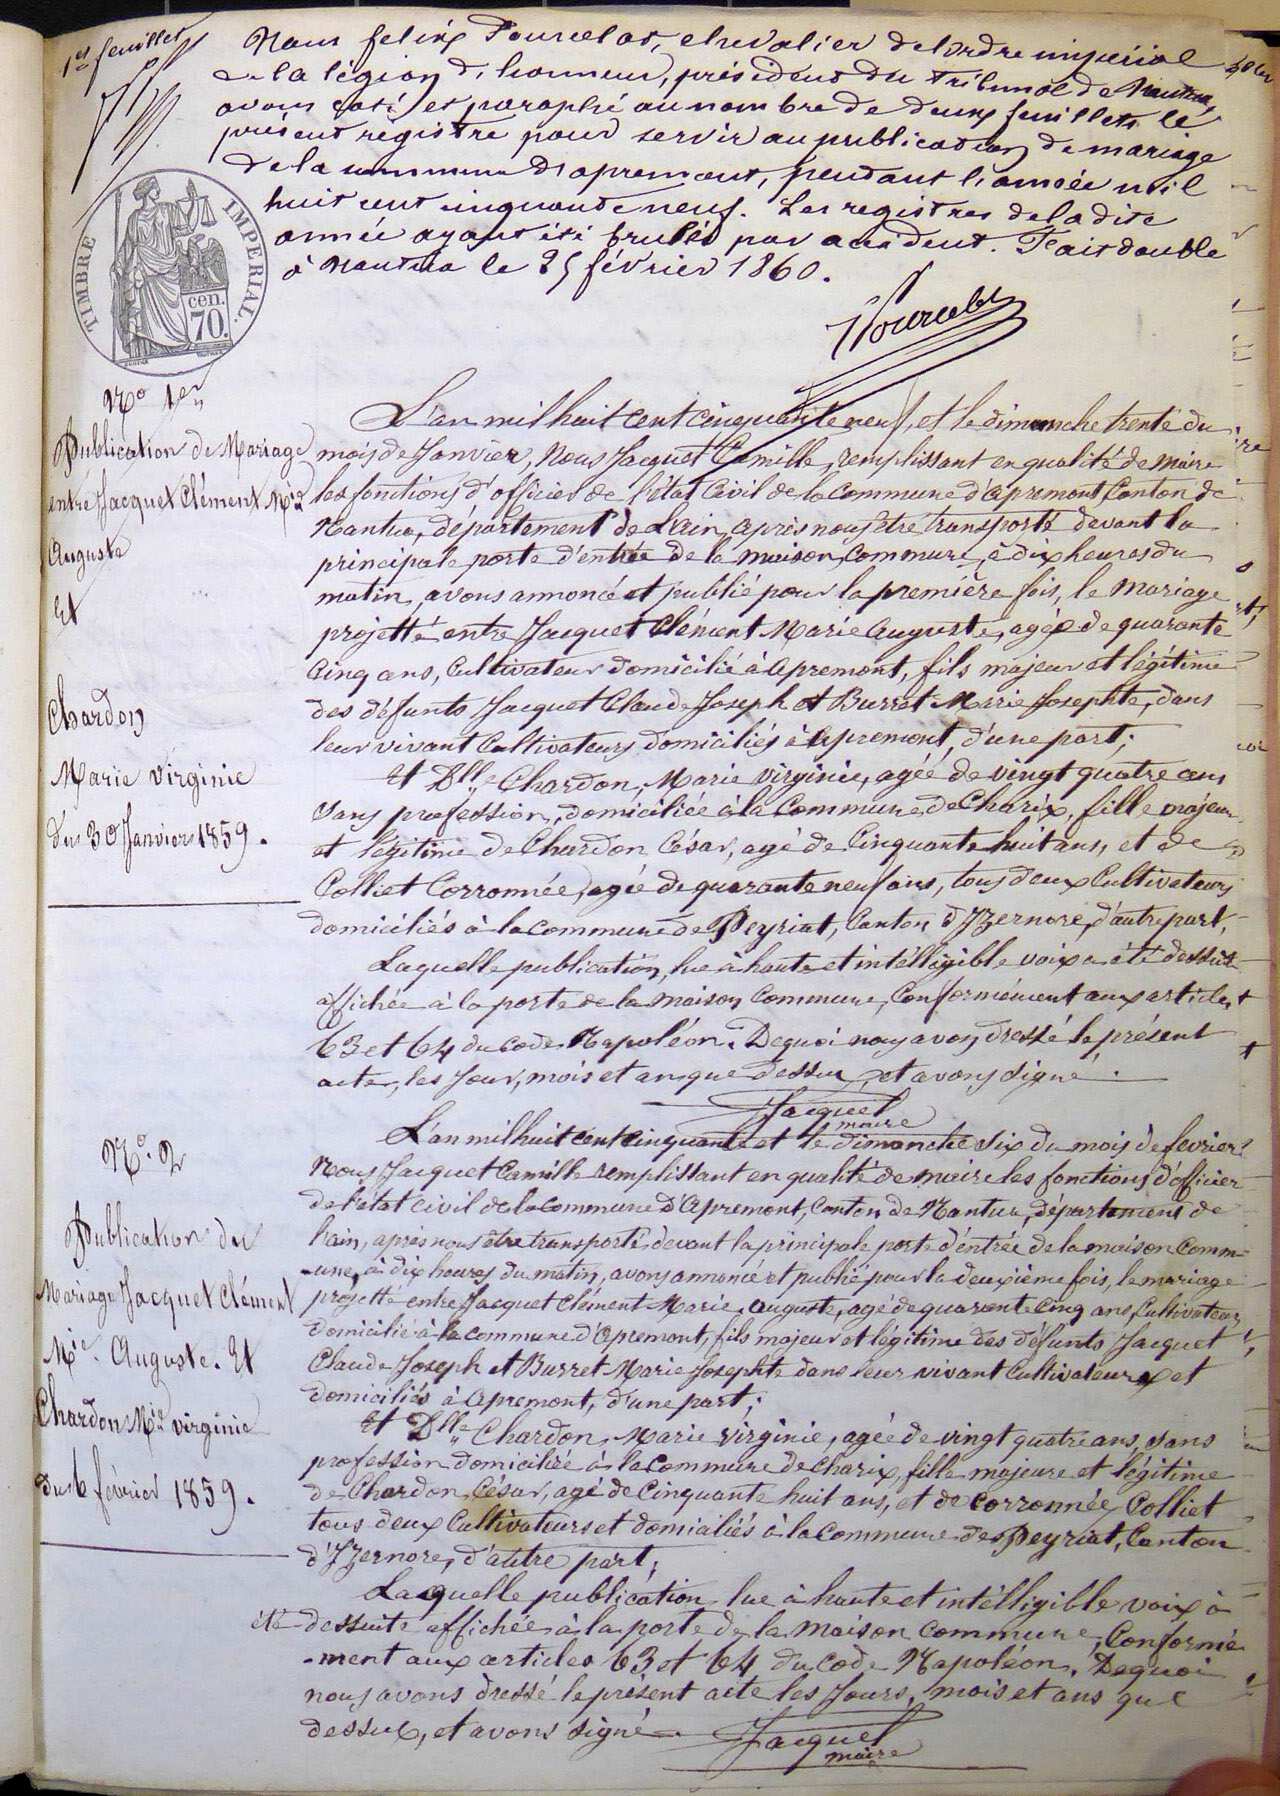 1er feuillet
Nous felix Pourcelot, chevalier de l'ordre impérial
de la légion d'honneur, président du tribunal de Nantua,
avons coté et paraphé au nombre de deux feuillets le
présent registre pour servir au publication de mariage
de la commune d'apremont, pendant l'année mil
huit cent cinquante neuf. Les registres de ladite
année ayant été brulés par accident. Fait double
à Nantua le 25 février 1860.
TIMBRE IMPERIAL.
cen.
70.
Pourcelot
No 1er
Publication de Mariage
entre Jacquet Clément Mie
Auguste
Et
Chardon
Marie virginie
du 30 Janvier 1859.
L'an mil huit cent cinquante neuf, et le dimanche trente du
mois de Janvier, Nous Jacquet Camille, remplissant en qualité de maire
les fonctions d'officier de l'état civil de la commune d'apremont, Canton de
Nantua, département de L'ain, après nous être transporté devant la
principale porte d'entrée de la maison commune, à dix heures du
matin, avons annoncé et publié pour la première fois, le mariage
projetté entre Jacquet Clément Marie Auguste, agé de quarante
cinq ans, Cultivateur domicilié à Apremont, fils majeur et légitime
des défunts Jacquet Claude Joseph et Burret Marie Josephte, dans
leur vivant Cultivateurs domiciliés à Apremont, d'une part;
Et Dlle Chardon, Marie virginie, agée de vingt quatre ans
sans profession, domiciliée à la Commune de Charix, fille majeure
et légitime de Chardon César, agé de Cinquante huit ans, et de
Colliet Corronnée, agée de quarante neuf ans, tous deux Cultivateurs
domiciliés à la commune de Peyriat, Canton d'Izernore, d'autre part,
Laquelle publication, lue à haute et intélligible voix a été dessuite
affichée à la porte de la maison Commune, Conformément aux articles
63 et 64 du code Napoléon. Dequoi nous avons dressé le présent
acte, les Jour, mois et an que dessus, et avons signé.
Jacquet
maire
No. 2
Publication du
Mariage Jacquet Clément
Mie. Auguste. Et
Chardon Mie virginie
du 6 février 1859.
L'an mil huit cent cinquante et le dimanche six du mois de fevrier
Nous Jacquet Camille remplissant en qualité de maire les fonctions d'officier
de l'état civil de la commune d'Apremont, Canton de Nantua, département de
l'ain, après nous être transporté devant la principale porte d'entrée de la maison Comm-
-une, à dix heures du matin, avons annoncé et publié pour la deuxième fois, le mariage
projetté entre Jacquet Clément Marie, Auguste, agé de quarante cinq ans, Cultivateur
domicilié à la commune d'Apremont, fils majeur et légitime des défunts Jacquet
Claude Joseph et Burret Marie Josephte dans leur vivant Cultivateurs et
domiciliés à Apremont, d'une part;
Et Dlle Chardon, Marie virginie, agée de vingt quatre ans, sans
profession domiciliée à la Commune de Charix, fille majeure et légitime
de Chardon César, agé de Cinquante huit ans, et de Corronnée Colliet
tous deux Cultivateurs et domiciliés à la Commune de Peyriat, Canton
d'Izernore, d'autre part;
Laquelle publication lue à haute et intélligible voix à
été dessuite affichée à la porte de la maison commune, Conformé
-ment aux articles 63 et 64 du code Napoléon. Dequoi
nous avons dressé le présent acte les Jours, mois et ans que
dessus, et avons signé.
Jacquet
maire